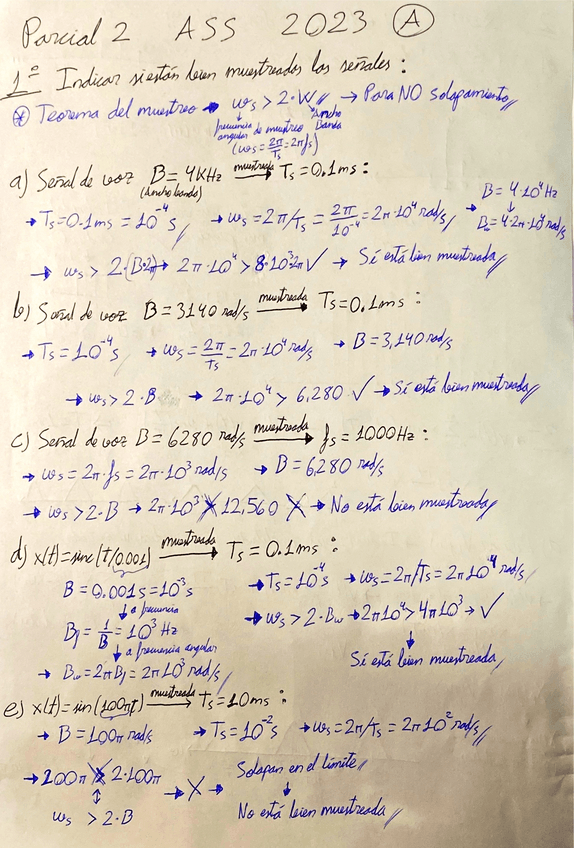 Parcial 2 ASS 2023 A
1º Indicar si están bien muestreadas las señales:
⊛ Teorema del muestreo → ωs > 2·W → Para NO solapamiento
frecuencia angular de muestreo
(ωs = 2π/Ts = 2πfs)
Ancho Banda
a) Señal de voz B = 4KHz muestreada → Ts = 0.1ms :
(Ancho banda)
→ Ts = 0.1ms = 10⁻⁴ s → ωs = 2π/Ts = 2π/10⁻⁴ = 2π·10⁴ rad/s → B = 4·10⁴ Hz
↓
Bω = 4·2π·10⁴ rad/s
→ ωs > 2·(B·2π) → 2π·10⁴ > 8·10³·2π ✓ → Sí está bien muestreada
b) Señal de voz B = 3140 rad/s muestreada → Ts = 0.1ms :
→ Ts = 10⁻⁴ s → ωs = 2π/Ts = 2π·10⁴ rad/s → B = 3,140 rad/s
→ ωs > 2·B → 2π·10⁴ > 6,280 ✓ → Sí está bien muestreada
c) Señal de voz B = 6280 rad/s muestreada → fs = 1000Hz :
→ ωs = 2π·fs = 2π·10³ rad/s → B = 6,280 rad/s
→ ωs > 2·B → 2π·10³ ≯ 12,560 X → No está bien muestreada
d) x(t) = sinc(t/0.001) muestreada → Ts = 0.1ms :
B = 0.001s = 10⁻³ s → Ts = 10⁻⁴ s → ωs = 2π/Ts = 2π10⁴ rad/s
↓ a frecuencia
Bf = 1/B = 10³ Hz → ωs > 2·Bω → 2π10⁴ > 4π10³ → ✓
↓ a frecuencia angular
→ Bω = 2πBf = 2π10³ rad/s Sí está bien muestreada
e) x(t) = sin(100πt) muestreada → Ts = 10ms :
→ B = 100π rad/s → Ts = 10⁻² s → ωs = 2π/Ts = 2π10² rad/s
→ 200π ≯ 2·100π → X → Solapan en el límite
↕
ωs > 2·B No está bien muestreada